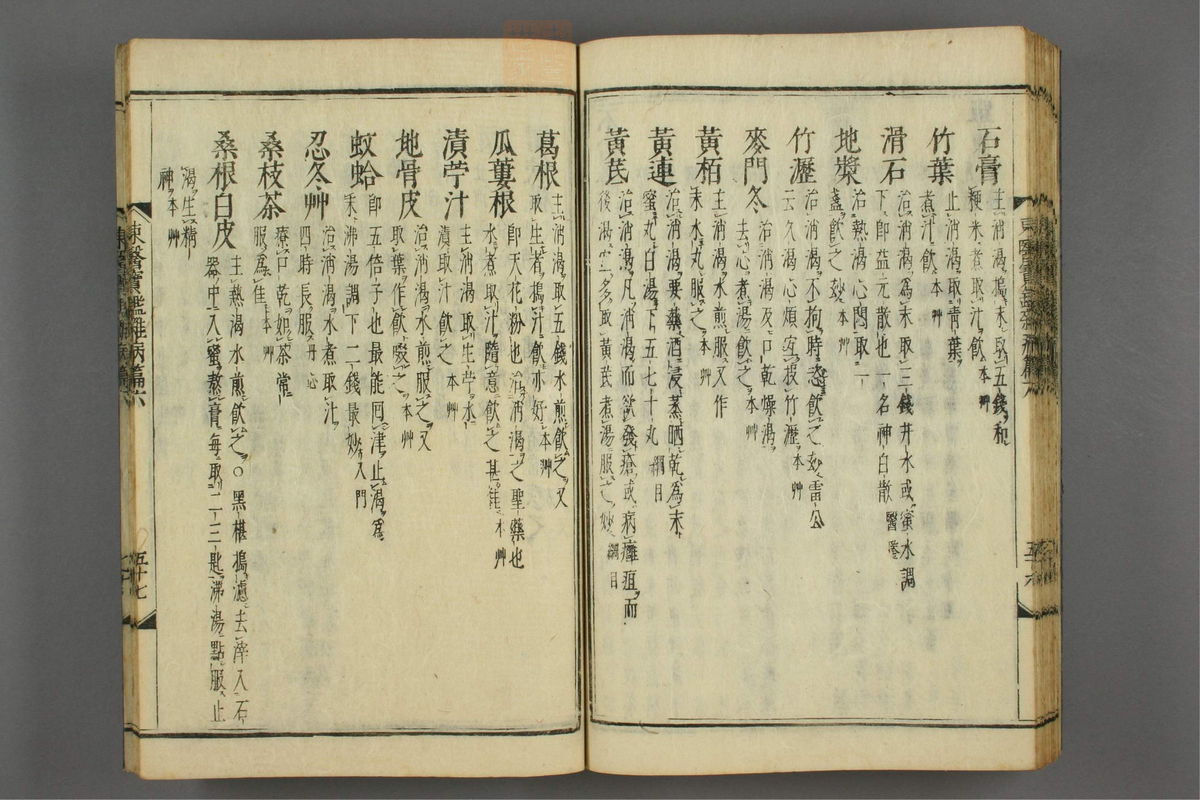 石膏 主消渴搗末取五錢和
粳米煮取汁飲 本艸
竹葉 止消渴取青葉
煮汁飲 本艸
滑石 治消渴為末取三錢井水或蜜水調
下卽益元散也一名神白散 醫鑑
地漿 治熱渴心悶取一
盞飲之 本艸
竹瀝 治消渴不拘時恣飲之妙雷公
云久渴心煩宜投竹瀝 本艸
麥門冬 治消渴及口乾燥渴
去心煮湯飲之 本艸
黃栢 主消渴水煎服又作
末水丸服之 本艸
黃連 治消渴要藥酒浸蒸晒乾為末
蜜丸白湯下五七十丸 綱目
黃芪 治消渴凡消渴而欲發瘡或病癰疽而
後渴宜多取黃芪煮湯服之妙 綱目
葛根 主消渴取五錢水煎飲之又
取生者搗汁飲亦好 本艸
瓜蔞根 卽天花粉也治消渴之聖藥也
水煮取汁隨意飲之甚佳 本艸
漬苧汁 主消渴取生苧水
漬取汁飲之 本艸
地骨皮 治消渴水煎服之又
取葉作飲啜之 本艸
蚊蛤 卽五倍子也最能回津止渴為
末沸湯調下二錢最妙 入門
忍冬艸 治消渴水煮取汁
四時長服 丹心
桑枝茶 療口乾如茶常
服為佳 本艸
桑根白皮 主熱渴水煎飲之○黑椹搗濾去滓入石
器中入蜜熬膏每取二三匙沸湯點服止
渴生精
神 本艸
東醫寶鑑雜病篇六
五十七